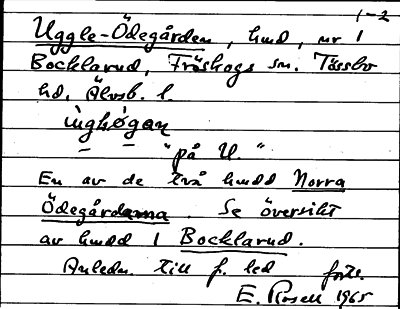 1-2
Uggle-Ödegården, hmd, nr 1
Bocklarud, Fröskogs sn. Tössbo
hd, Älvsb. l.
ùghø̀gan
"på U."
En av de två hmdd Norra
Ödegårdarna. Se översikt
av hmdd / Bocklarud.
Anledn. till f. led forts.
E. Rosell 1965